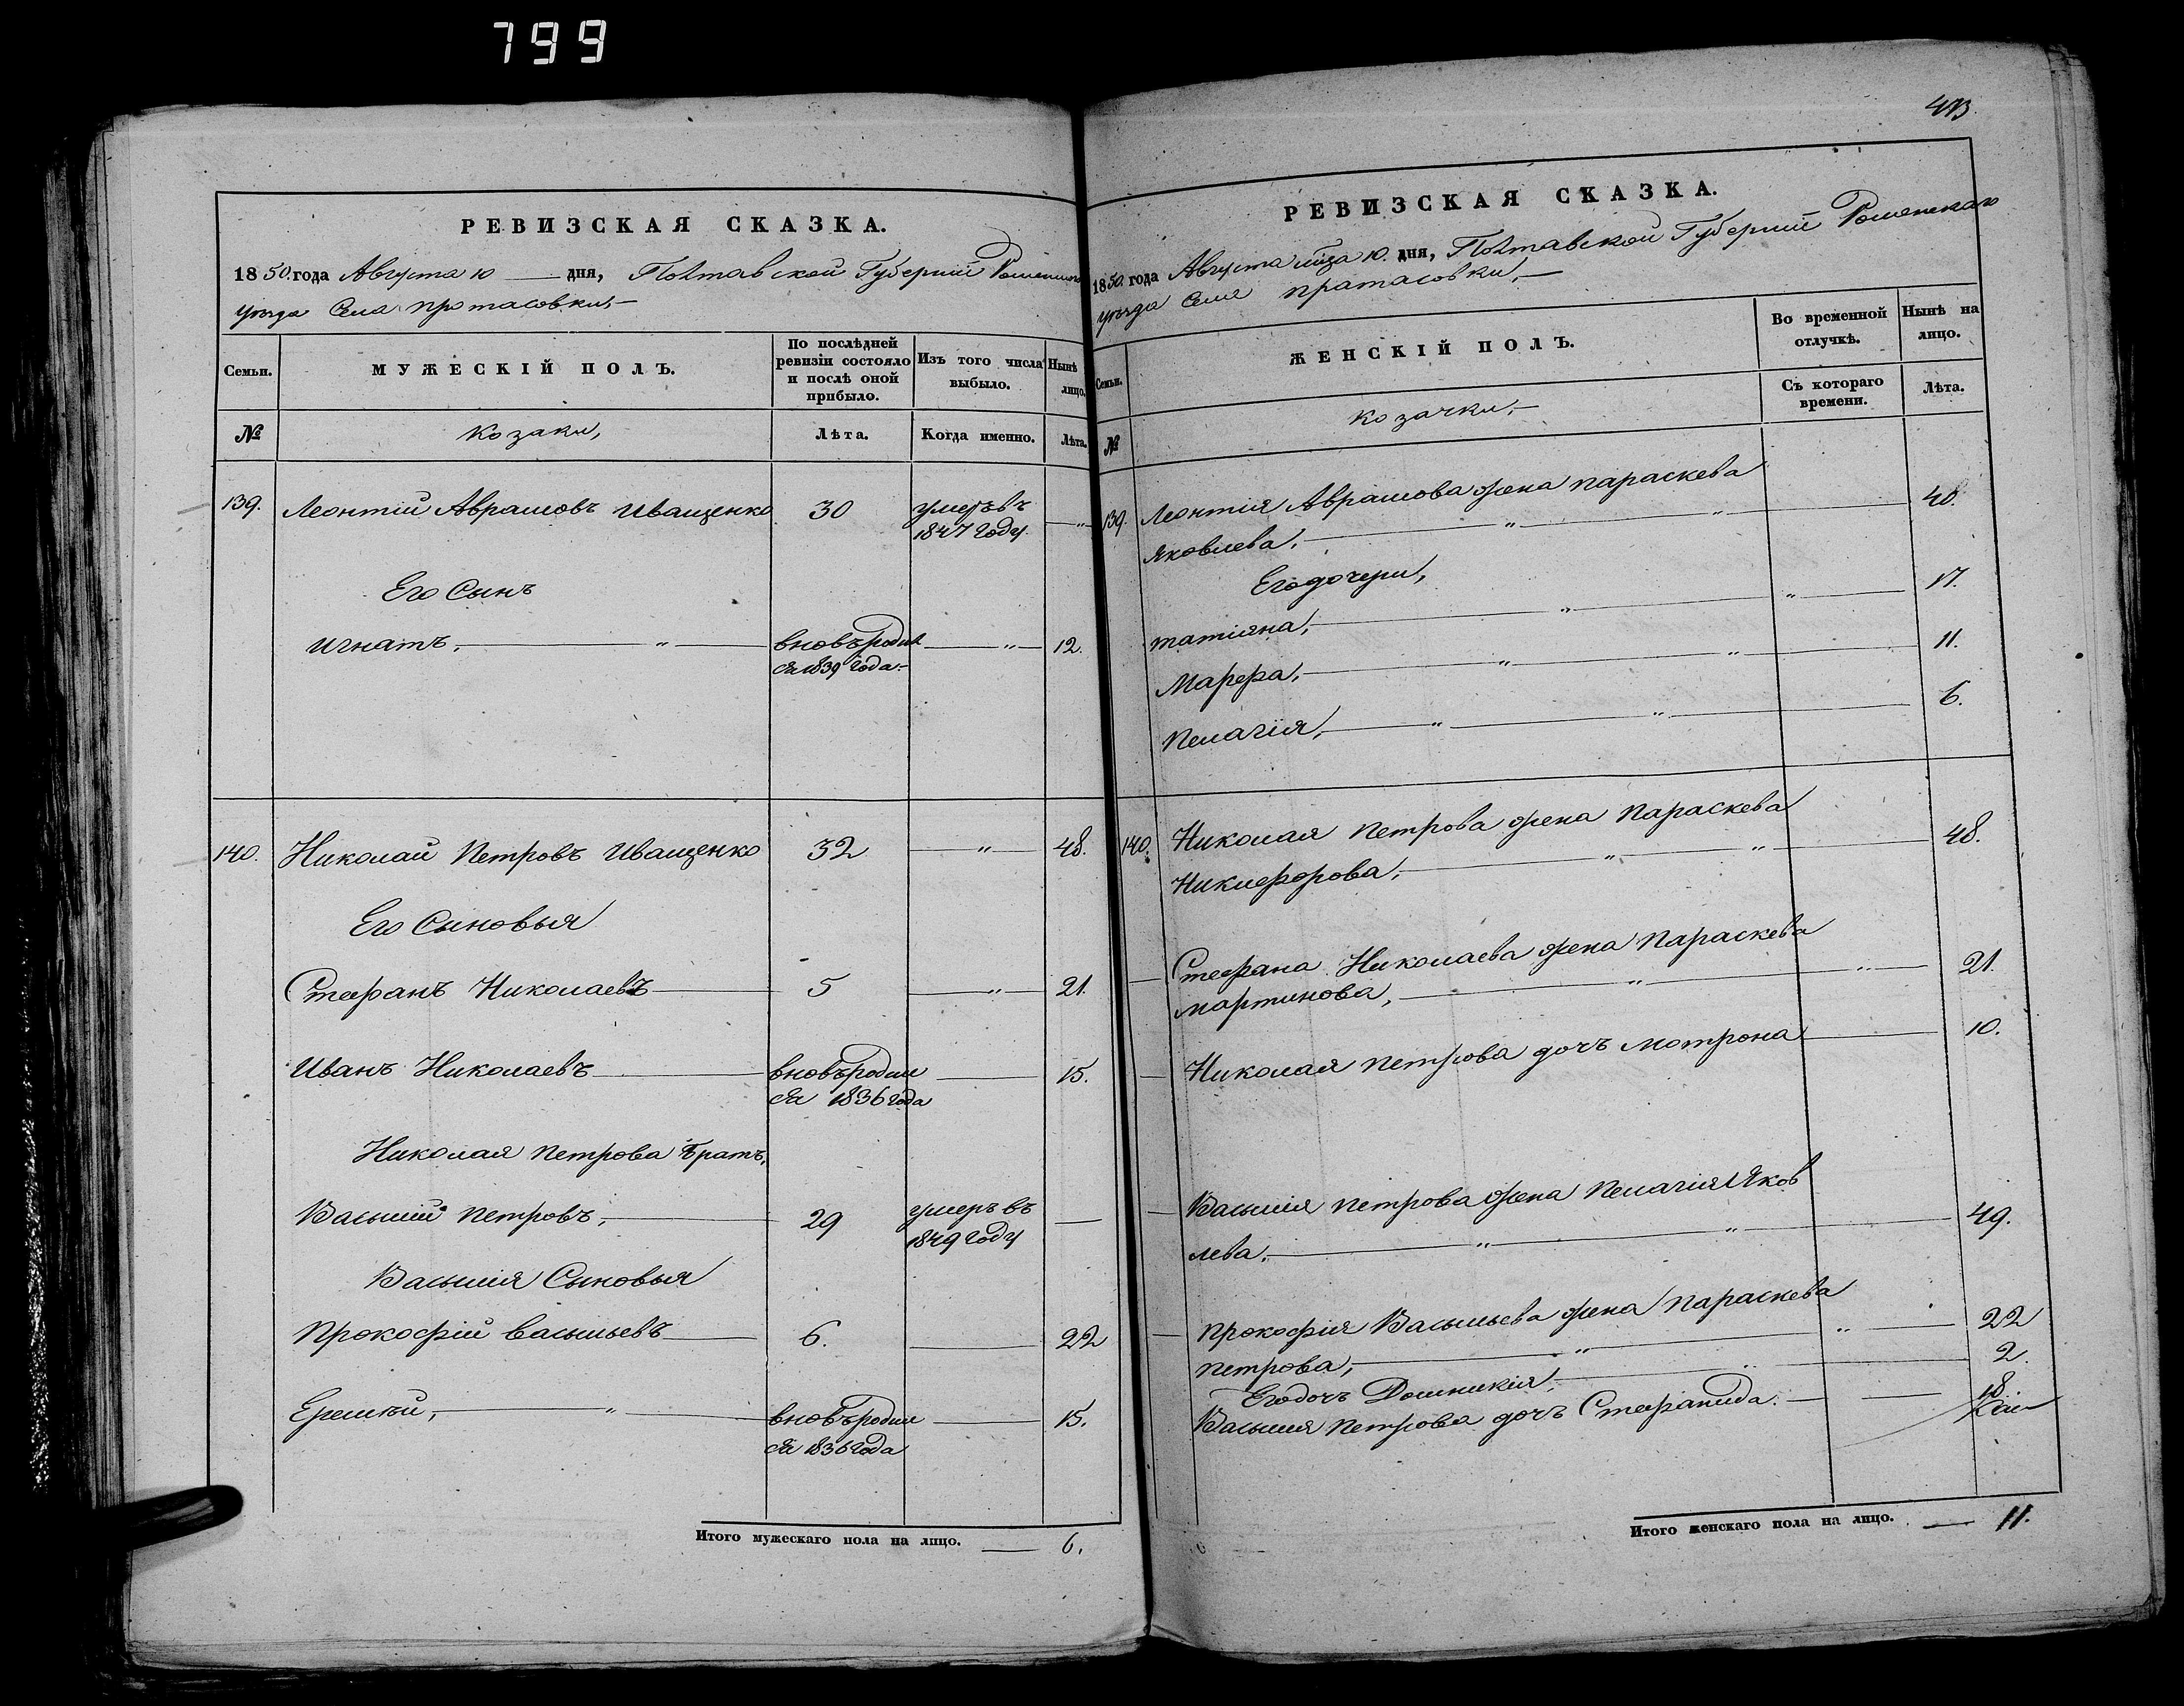 799
РЕВИЗСКАЯ СКАЗКА.
1850. года Августа 10 дня, Полтавской Губерніи Роменскаго
уѣзда Села Протасовки,
Семьи.
МУЖЕСКІЙ ПОЛЪ.
По послѣдней ревизіи состояло и послѣ оной прибыло.
Изъ того числа выбыло.
Нынѣ лицо.
№
Козаки,
Лѣта.
Когда именно.
Лѣта.
139. Леонтій Аврамовъ Иващенко 30 умеръ въ
1847 году. "
Его Сынъ
Игнатъ, " вновь родил " 12.
ся 1839 года.
140. Николай Петровъ Иващенко 32 " 48.
Его Сыновья
Стефанъ Николаевъ 5 " 21.
Иванъ Николаевъ вновь родил 15.
ся 1836 года
Николая Петрова братъ,
Василій Петровъ, 29 умеръ въ
1849 году
Василія Сыновья
Прокофій Васильевъ 6. 22
Еремѣй, " вновь родил 15.
ся 1836 года
Итого мужескаго пола на лицо. 6.
473.
РЕВИЗСКАЯ СКАЗКА.
1850. года Августа мца 10. дня, Полтавской Губерніи Роменскаго
уѣзда Села Пратасовки,
Семьи.
ЖЕНСКІЙ ПОЛЪ.
Во временной отлучкѣ.
Нынѣ на лицо.
Съ котораго времени.
Лѣта.
№
Козачки,
139. Леонтія Аврамова жена Параскева
Яковлева, " " 40.
Его дочери,
Татіяна, " " 17.
Марфа, " " 11.
Пелагія, " " 6.
140. Николая Петрова жена Параскева
Никифорова, " " 48.
Стефана Николаева жена Параскева
Мартинова, " " 21.
Николая Петрова дочь Мотрона 10.
Василія Петрова жена Пелагія Яков
лева, " " 49.
Прокофія Васильева жена Параскева
Петрова, " " 22
Его дочь Домникія, " 2.
Василія Петрова дочь Стефанида. 18.
Итого женскаго пола на лицо. 11.